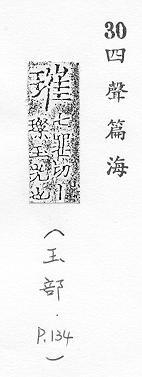 30
四聲篇海
璀
七罪切丨
璨玉光也
（玉部．P.134）